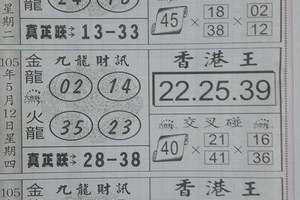 星期二
真正旺→13-33
45
18 02
38 12
105年5月12日星期四
金龍 火龍
九龍財訊
02 14
35 23
真正旺→28-38
香港王
22.25.39
交叉碰
40
21 16
41 36
105
金
九龍財訊
香港王